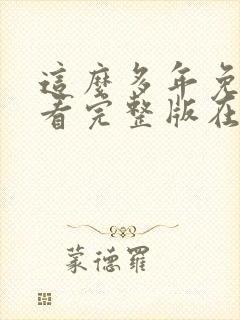 這麼多年免
看完整版在
蒙德羅